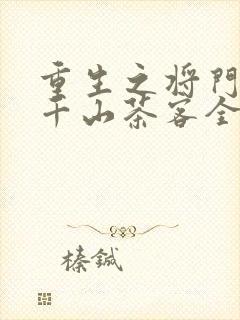 重生之将門
千山茶客全
榛鍼